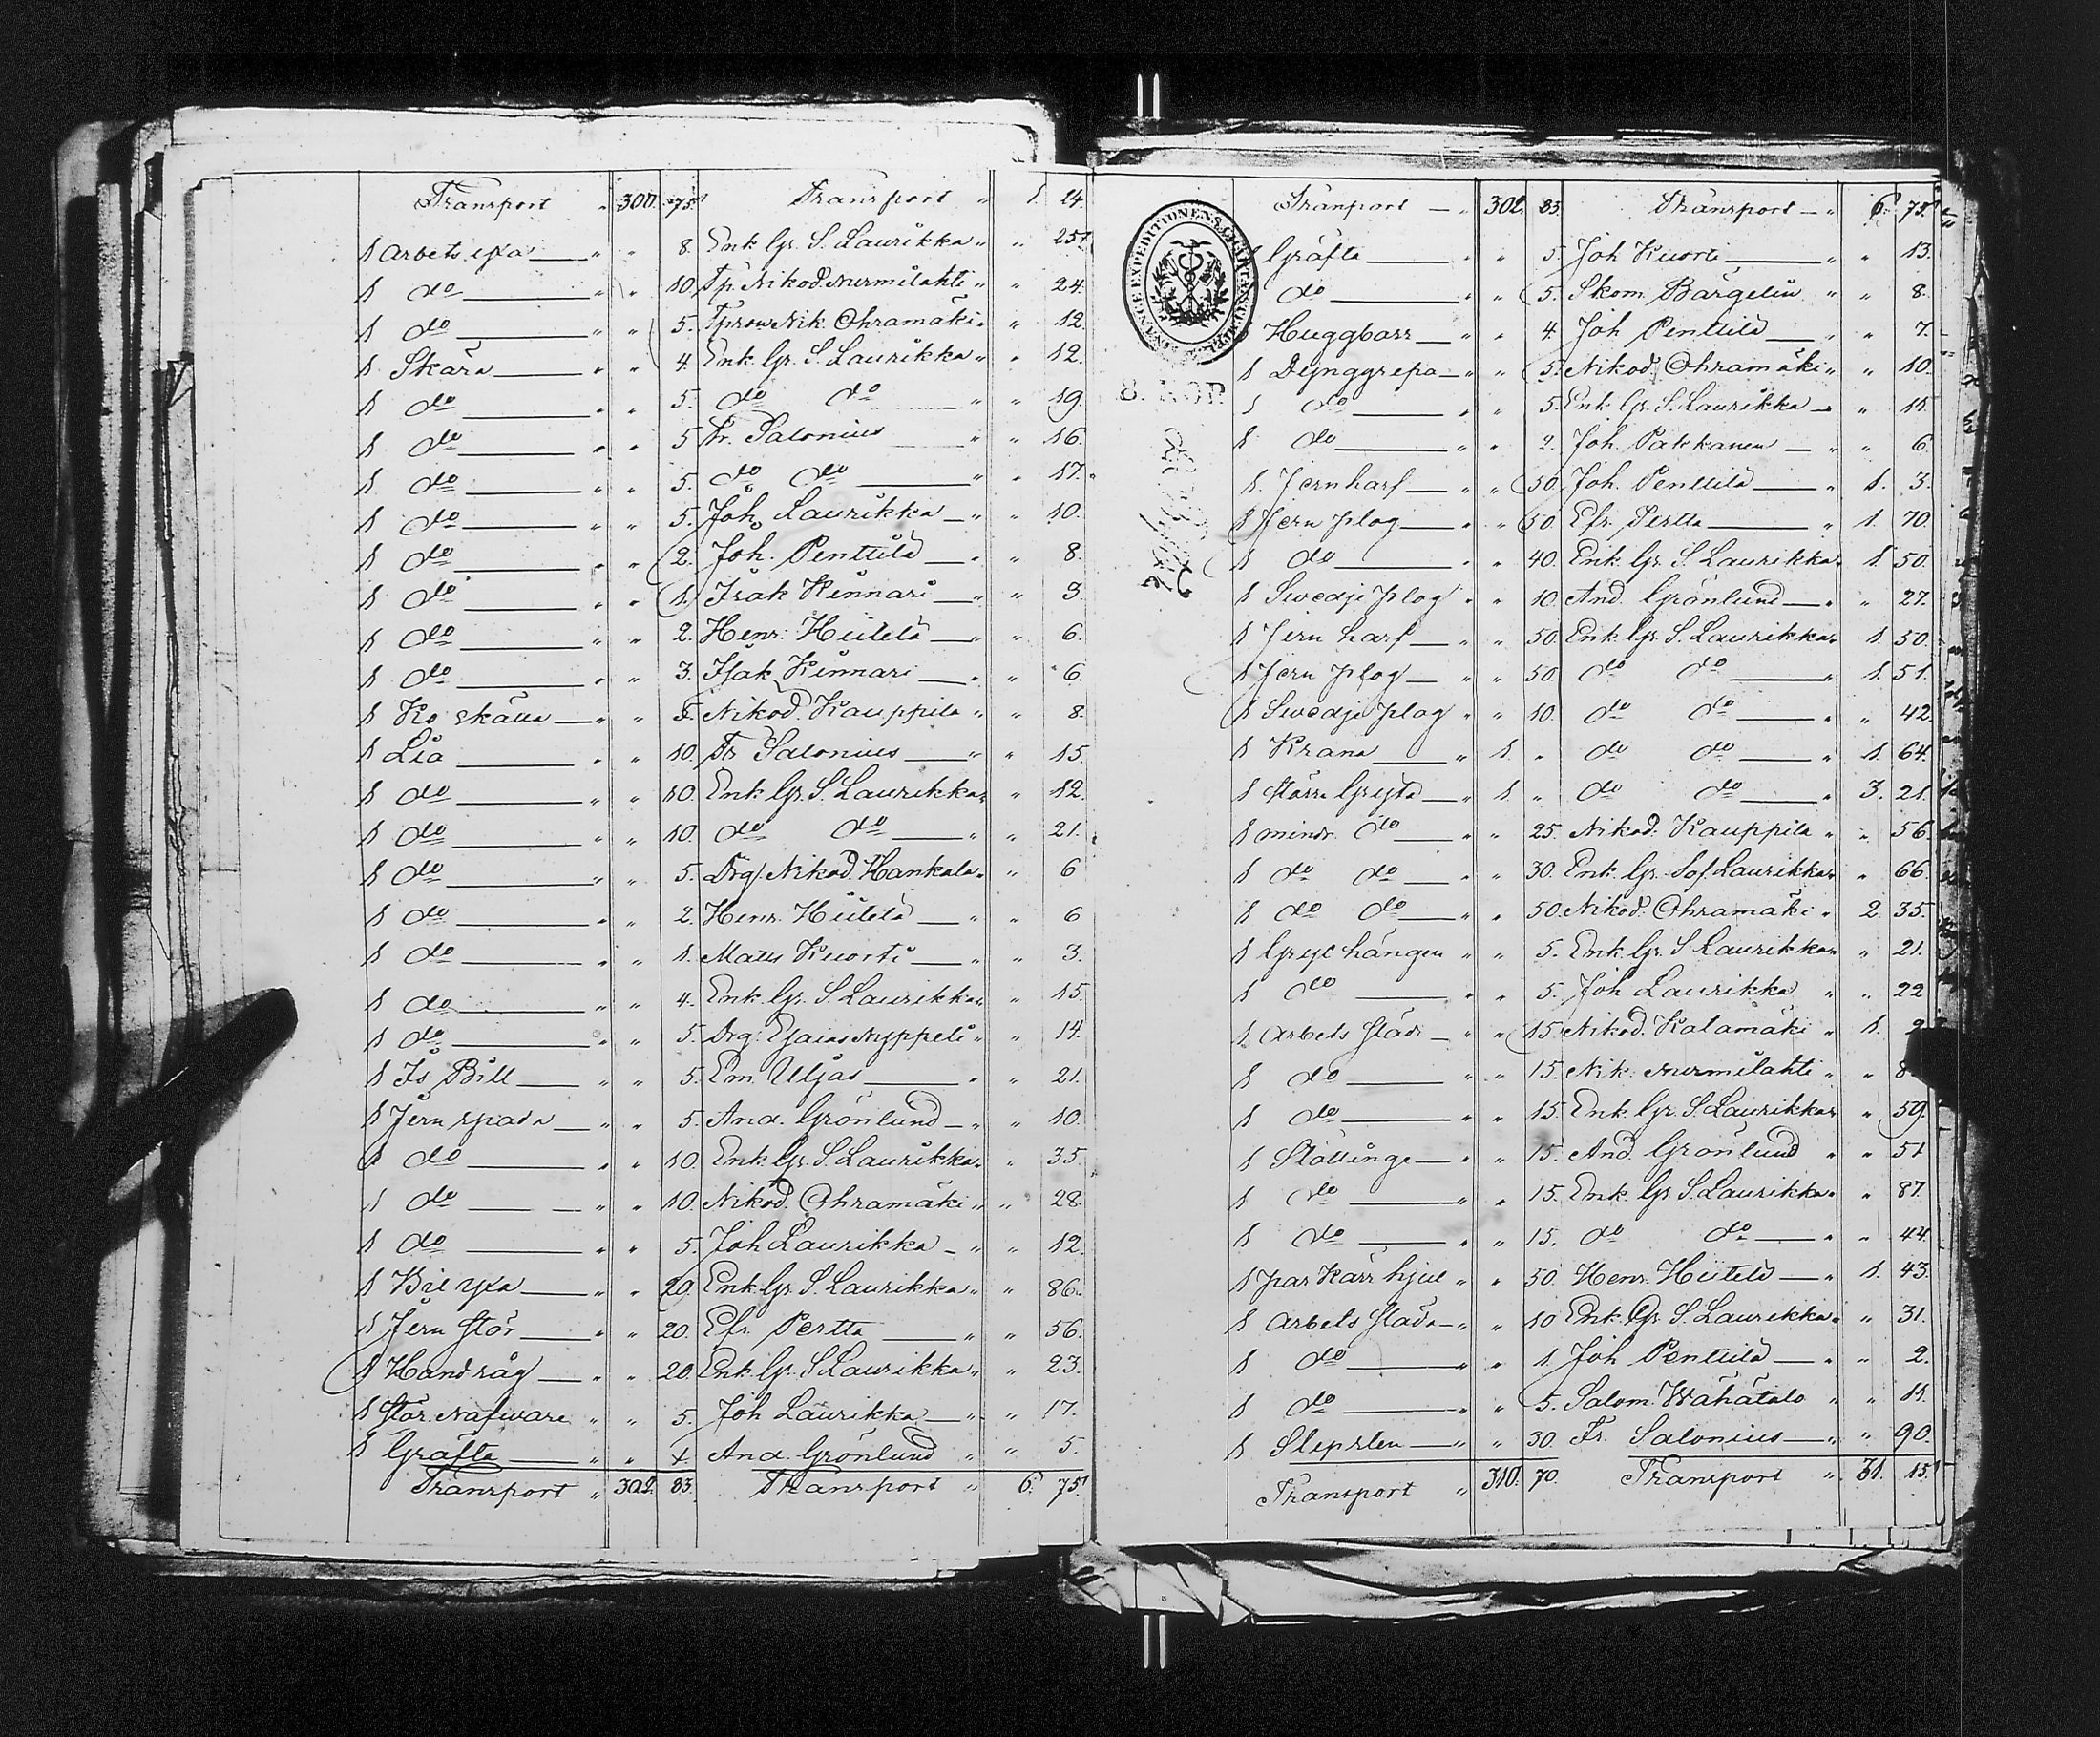 Transport " 300. 75 Transport " 1. 14.
1 Arbets yxa " " 8. Enk. Gr. S. Laurikka " " 25
1 do " " 10. Tp. Nikod. Nurmilahti " " 24.
1 do " " 5. Nik. Ohramäki " " 12.
1 Skära " " 4. Enk. Gr. S. Laurikka " " 12.
1 do " " 5. do do " " 19.
1 do " " 5. Fr. Salonius " " 16.
1 do " " 5. do do " " 17.
1 do " " 5. Joh. Laurikka " " 10.
1 do " " 2. Joh. Penttilä " " 8.
1 do " " 1. Isak Kinnari " " 3.
1 do " " 2. Henr. Heitelä " " 6.
1 do " " 3. Isak Kinnari " " 6.
1 Ko skälla " " 5. Nikod. Kauppila " " 8.
1 Lia " " 10. Fr Salonius " " 15.
1 do " " 10. Enk. Gr. S. Laurikka " " 12.
1 do " " 10. do do " " 21.
1 do " " 5. Drg. Nikod. Hankala " " 6
1 do " " 2. Henr. Heitelä " " 6
1 do " " 1. Matts Kuorti " " 3.
1 do " " 4. Enk. Gr. S. Laurikka " " 15.
1 do " " 5. Drg. Esaias Nyppeli " " 14.
1 Is Bill " " 5. Em. Uljas " " 21.
1 Jern spada " " 5. And. Grönlund " " 10.
1 do " " 10. Enk. Gr. S. Laurikka " " 35.
1 do " " 10. Nikod. Ohramäki " " 28.
1 do " " 5. Joh Laurikka " " 12.
1 Bil yxa " " 20. Enk. Gr. S. Laurikka " " 86.
1 Jern stör " " 20. Efr. Pertta " " 56.
1 Handsåg " " 20. Enk. Gr. S. Laurikka " " 23.
1 stör. Nafware " " 5. Joh Laurikka " " 17.
1 Gräfta " " And. Grönlund " " 5.
Transport " 302. 83. Transport " 6. 75
Transport " 302. 83. Transport " 6. 75
1 Gräfta " " 5. Joh Kuorti " " 13.
do " " 5. Skom. Bärgelin " " 8.
1 Huggbarr " " 4. Joh Penttilä " " 7.
1 Dynggrepa " " 5. Nikod. Ohramäki " " 10.
1 do " " 5. Enk. Gr. S. Laurikka " " 11.
1 do " " 2. Joh. Pakkanen " " 6
1. Jernharf " " 50. Joh. Penttilä " 1. 3.
1 Jern plog " " 50. Efr. Pertta " 1. 70.
1 do " " 40. Enk. Gr. S. Laurikka " 1. 50.
1 Swedje plog " " 10. And. Grönlund " " 27.
1 Jern harf " " 50. Enk. Gr. S. Laurikka " 1. 50.
1 Jern plog " " 50. do do " 1. 51.
1 Swedje plog " " 10. do do " " 42.
1 Krana " 1. " do do " 1. 64.
1 större Gryta " 1. " do do " 3. 21.
1 mindr. do " " 25. Nikod. Kauppila " " 56.
1 do do " " 30. Enk. Gr. Sof. Laurikka " " 66.
1 do do " " 50. Nikod. Ohramäki " 2. 35.
1 Gryt hängen " " 5. Enk. Gr. S Laurikka " " 21.
1 do " " 5. Joh Laurikka " " 22
1 Arbets släde " " 15. Nikod. Kalamäki " 1.
1 do " " 15. Nik. Nurmilahti " "
1 do " " 15. Enk. Gr. S. Laurikka " " 59.
1 Stöttinge " " 15. And. Grönlund " " 51
1 do " " 15. Enk. Gr. S. Laurikka " " 87.
1 do " " 15. do do " " 44.
1 par Kärr hjul " " 50. Henr. Heitelä " 1. 43.
1 Arbets släde " " 10 Enk. Gr. S. Laurikka " " 31.
1 do " " 1. Joh Penttilä " " 2.
1 do " " 5. Salom. Wähätalo " " 11.
1 Slipsten " " 30. Fr. Salonius " " 90.
Transport " 310. 70. Transport " 31. 15
8. KOP.